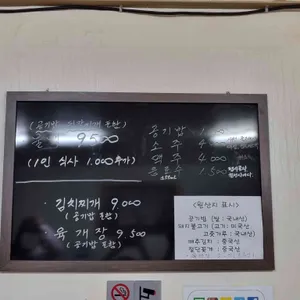 9500
(1인 식사 1.000추가)
· 김치찌개 9000
(공기밥 포함)
· 육개장 9500
(공기밥 포함)
공기밥
소주 4000
맥주 4000
음료수 1.500
<원산지 표시>
공기밥 (쌀 : 국내산)
돼지불고기 (고기: 미국산
고춧가루 : 국내산)
배추김치 : 중국산